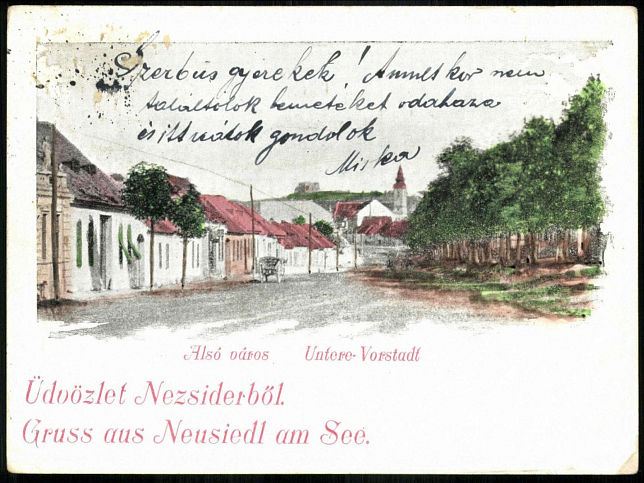 Szerbús gyerekek! Annets kor nem
találtolok benneteket odahaza
és itt rátok gondolok
Miska
Alsó város Untere-Vorstadt
Üdvözlet Nezsiderből.
Gruss aus Neusiedl am See.